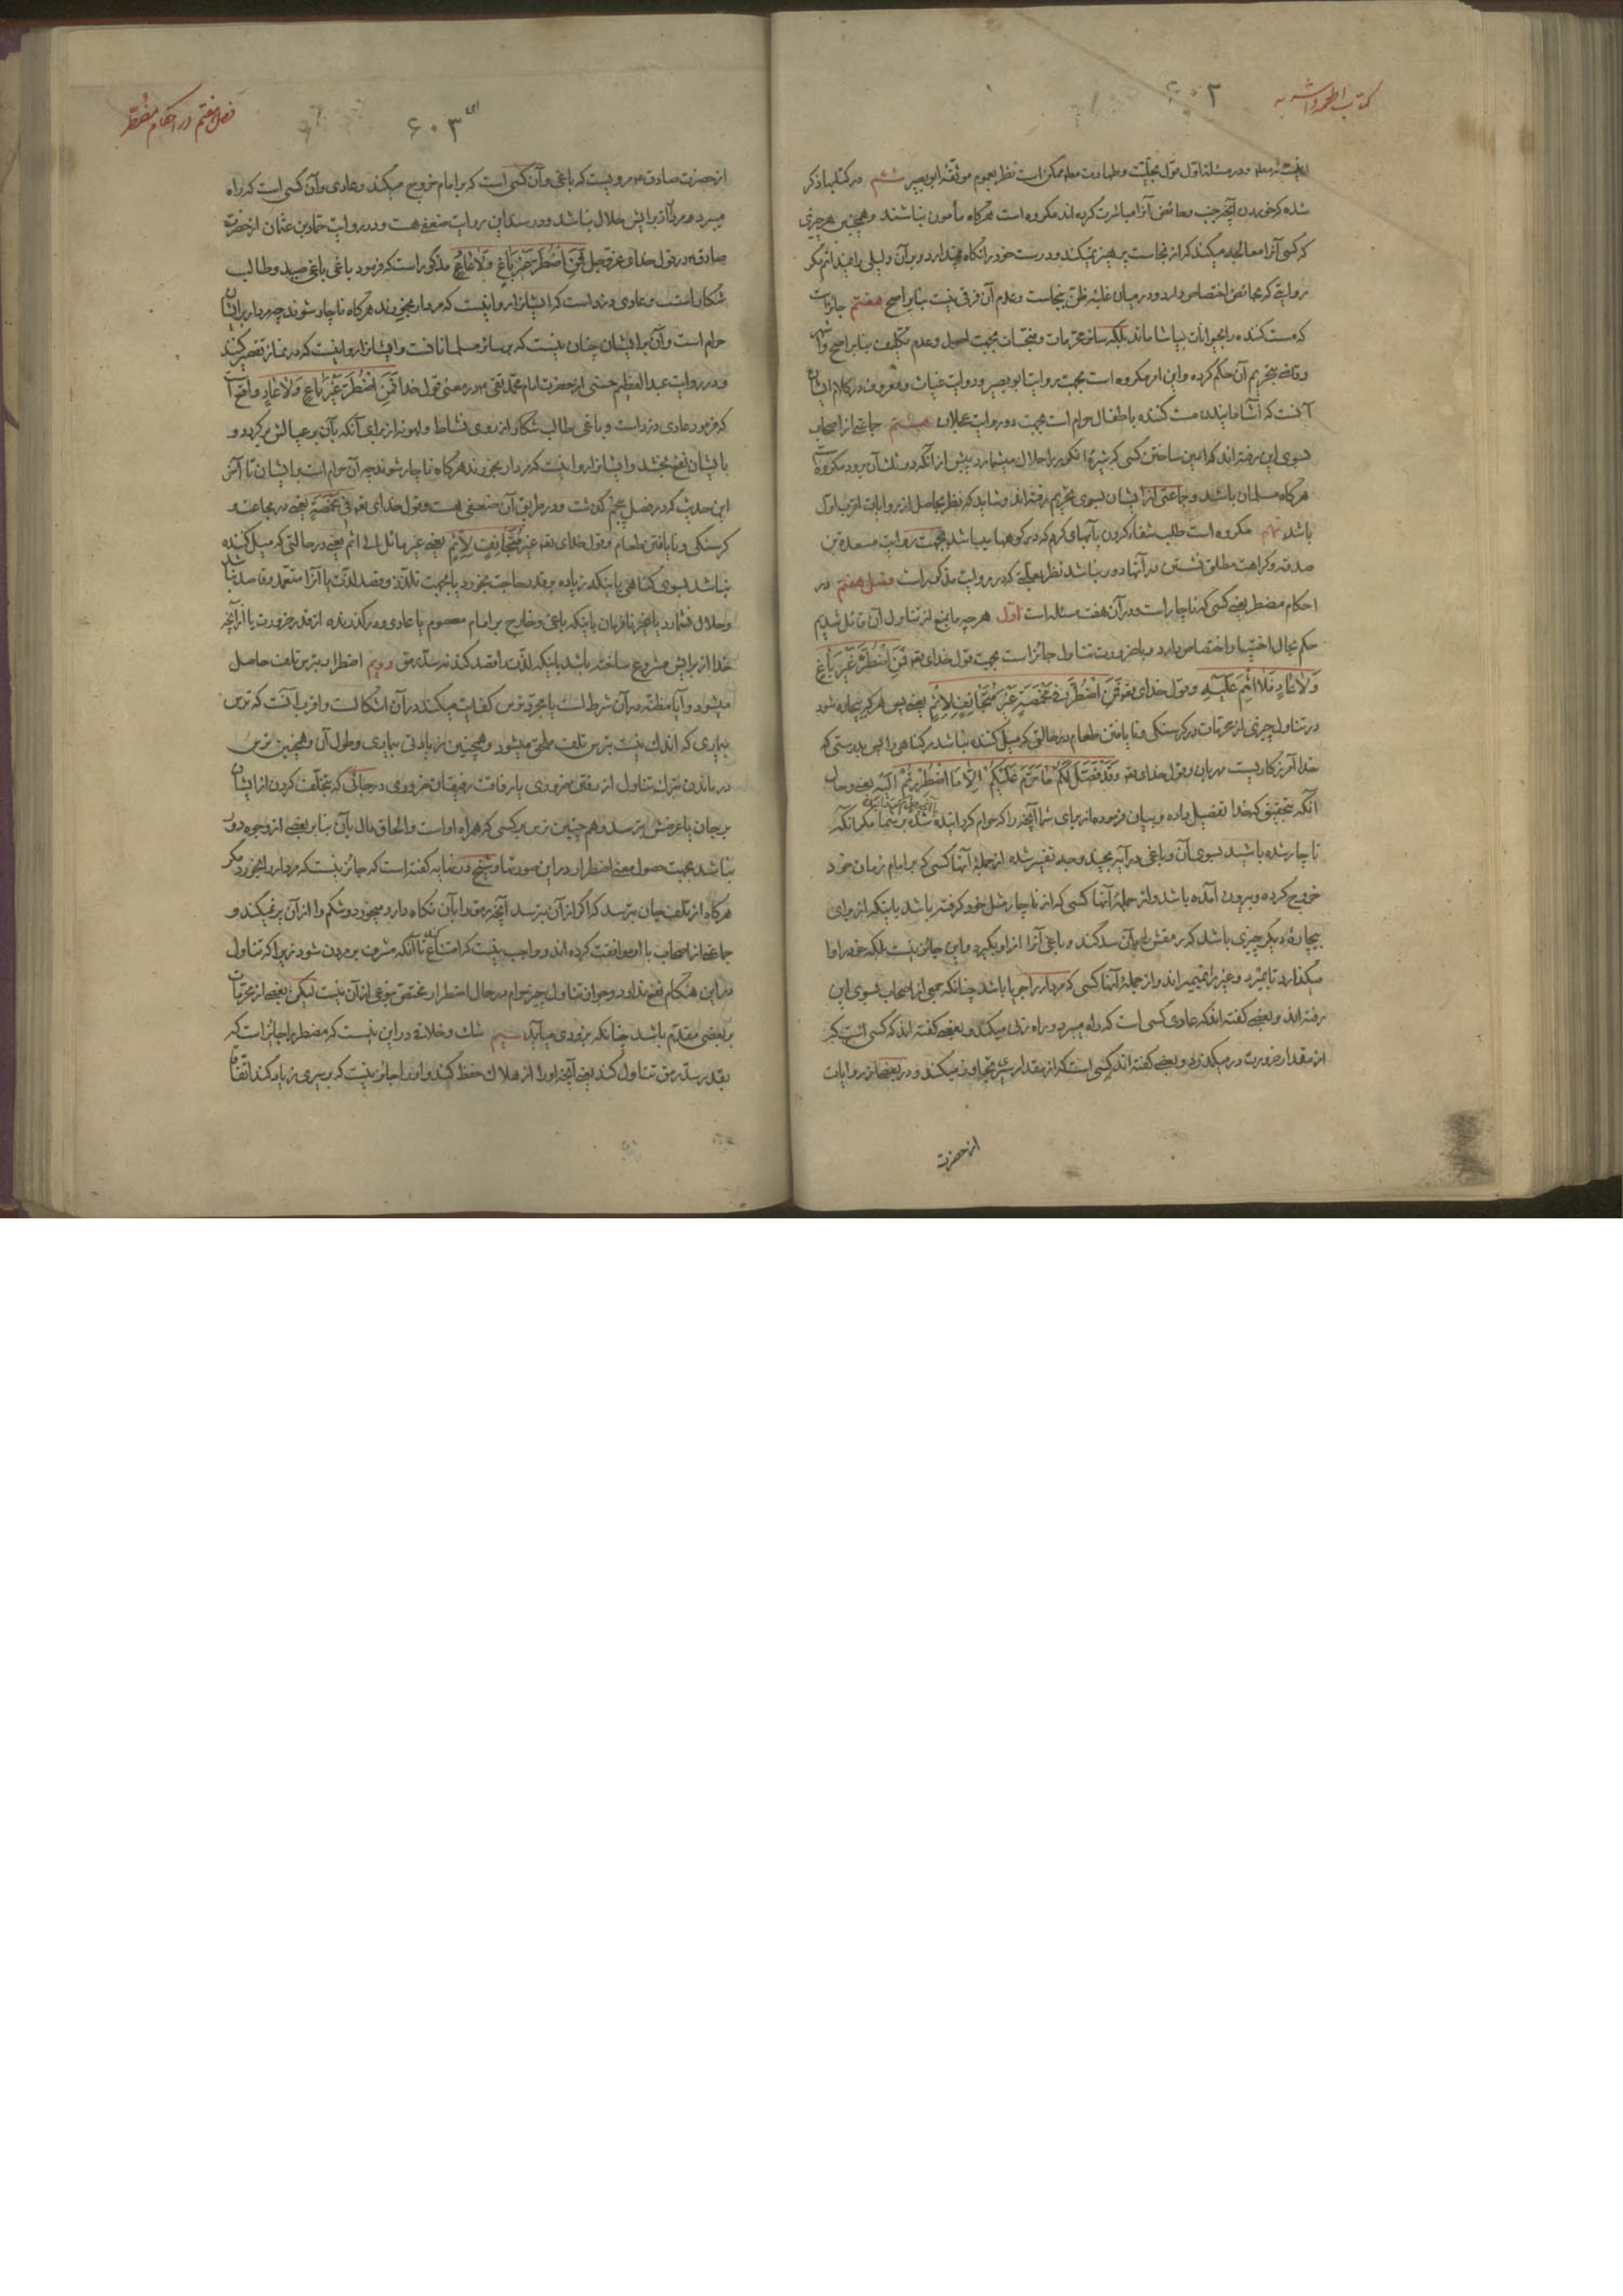 کتاب اطعمه و اشربه
۶۰۲
نیست نه معله ودر مسئله اول قول بحلّیت وطهارت معله ممکن است نظر بعموم موثقهٔ ابی بصیر ششم در کتابها ذکر
شده که خوردن آنچه جنب وحائض آنرا مباشرت کرده اند مکروه است هرگاه مأمون نباشند وهمچنین هر چیزی
که کسی آنرا معالجه میکند که از نجاست پرهیز نمیکند ودرست خود را نگاه نمیدارد وبر آن دلیلی را نمیدانم مگر
روایتی که بحائض اختصاص دارد ودر میان غلبهٔ ظن بنجاست وعدم آن فرقی نیست بنابر اصح هفتم جایز است
که مست کننده را بحیوانات بیاشاماند بلکه سایر محرمات ومتنجسات بجهت اصل وعدم تکلیف بنابر اصح واشهر
وقاضی بتحریم آن حکم کرده واین امر مکروه است بجهت روایت ابو بصیر وروایت غیاث ومعروف در کلام ایشان
آنست که آشامانیدن مست کننده باطفال حرام است بجهت دو روایت عجلان هشتم جماعتی از اصحاب
بسوی این رفته اند که امین ساختن کسی که شیرهٔ انگور را حلال میشمارد پیش از آنکه دو ثلث آن برود مکروه است
هرگاه مسلمان باشد وجماعتی از ایشان بسوی تحریم رفته اند وشاید که نظر بحاصل از روایات اقرب اول
باشد نهم مکروه است طلب شفاء کردن بآبهای گرم که در کوهها میباشد بجهت روایت مسعدة بن
صدقه وکراهت مطلق نشستن در آنها دور نباشد نظر بعلتی که در روایت مذکور است فصل هفتم در
احکام مضطر یعنی کسی که ناچار است ودر آن هفت مسئله است اول هر چه بمنع از تناول آن قائل شدیم
حکم بحال اختیار اختصاص دارد وبا ضرورت تناول جائز است بجهت قول خدای تعه فَمَنِ اضْطُرَّ غَیْرَ بٰاغٍ
وَلاٰ عٰادٍ فَلاٰ اِثْمَ عَلَیْهِ وقول خدای تعه فَمَنِ اضْطُرَّ فی مَخْمَصَةٍ غَیْرَ مُتَجٰانِفٍ لِاِثْمٍ یعنی پس هر که بیچاره شود
در تناول چیزی از محرمات در گرسنگی ونا یافتن طعام در حالتی که میل کننده نباشد بر گناهی را پس بدرستی که
خدا آمرزگاریست مهربان وقول خدای تعه وَقَدْ فَصَّلَ لَکُمْ مٰا حَرَّمَ عَلَیْکُمْ اِلاّٰ مَا اضْطُرِرْتُمْ اِلَیْهِ یعنی وحال
آنکه بتحقیق که خدا تفصیل داده وبیان فرموده از برای شما آنچه را که حرام گردانیده شده بر شما مگر آنکه
ناچار شده باشید بسوی آن وباغی در آیه بچند وجه تفسیر شده از جملهٔ آنها کسی که بر امام زمان خود
خروج کرده وبیرون آمده باشد واز جملهٔ آنها کسی که از ناچار مثل خود گرفته باشد باینکه از برای
بیچارهٔ دیگر چیزی باشد که رمقش را بآن سد کند وباغی آنرا از او بگیرد واین جایز نیست بلکه خود را وا
میگذارد تا بمیرد وغیر را نمیمیراند واز جملهٔ آنها کسی که مردار را جویا باشد چنانکه جمعی از اصحاب بسوی این
رفته اند وبعضی گفته اند که عادی کسی است که راه میبرد وراه زنی میکند وبعضی گفته اند که کسی است که
از مقدار ضرورت در میگذرد وبعضی گفته اند کسی است که از مقدار سیری تجاوز میکند ودر بعضی از روایات
از حضرت
فصل هفتم در احکام مضطرّ
۶۰۳
از حضرت صادق ع مرویست که باغی وآن کسی است که بر امام خروج میکند وعادی وآن کسی است که راه
میبرد ومردار برایش حلال نباشد ودر سند این روایت ضعفی هست ودر روایت حماد بن عثمان از حضرت
صادق ع در قول خدای عزوجل فَمَنِ اضْطُرَّ غَیْرَ بٰاغٍ وَلاٰ عٰادٍ مذکور است که فرمود باغی باغی صید وطالب
شکار است وعادی دزد است که ایشانرا روا نیست که مردار بخورند هرگاه ناچار شوند چه مردار بر ایشان
حرام است وآن بر ایشان چنان نیست که بر سایر مسلمانانست وایشانرا روا نیست که در نماز تقصیر کنند
ودر روایت عبد العظیم حسنی از حضرت امام محمد تقی ع در معنی قول خدا فَمَنِ اضْطُرَّ غَیْرَ بٰاغٍ وَلاٰ عٰادٍ واقع است
که فرمود عادی دزد است وباغی طالب شکار از روی نشاط ولهو نه از برای آنکه بآن بر عیالش بر گردد و
بایشان نفع بخشد وایشانرا روا نیست که مردار بخورند هرگاه ناچار شوند چه آن حرام است بر ایشان تا آخر
این حدیث که در فصل پنجم گذشت ودر طریق آن ضعفی هست وقول خدای تعه فی مَخْمَصَةٍ یعنی در مجاعت و
گرسنگی ونا یافتن طعام وقول خدای تعه غَیْرَ مُتَجٰانِفٍ لِاِثْمٍ یعنی غیر مائل الی اثم یعنی در حالتی که میل کننده
نباشد بسوی گناهی باینکه زیاده بر قدر حاجت بخورد یا بجهت تلذذ وقصد لذت یا آنرا متعمد وقاصد نباشد
وحلال نشمارد یا بخیر نافرمان باینکه باغی وخارج بر امام معصوم یا عادی ودر گذرنده از قدر ضرورت یا از آنچه
خدا از برایش مشروع ساخته باشد باینکه لذت را قصد کند نه سد رمق دویم اضطرار بترس تلف حاصل
میشود وآیا مظنه در آن شرط است یا مجرد ترس کفایت میکند در آن اشکالست واقرب آنست که ترس
بیماری که اندک نیست بترس تلف ملحق میشود وهمچنین زیادتی بیماری وطول آن وهمچنین ترس
در ماندن بترک تناول از رفتن ضروری یا رفاقت رفیقان ضروری در جائی که بتخلف کردن از ایشان
بر جان یا عرضش بترسد وهم چنین ترس بر کسی که همراه اوست والحاق مال بآن بنابر بعضی از وجوه دور
نباشد بجهت حصول معنی اضطرار در این صورتها وشیخ در نهایه گفته است که جائز نیست که مردار را بخورد مگر
هرگاه از تلف جان بترسد که اگر از آن بترسد آنچه رمق را بآن نگاه دارد میخورد وشکم را از آن پر نمیکند و
جماعتی از اصحاب با او موافقت کرده اند وواجب نیست که امتناع کند تا آنکه مشرف بر مردن شود زیرا که تناول
در این هنگام نفع ندارد وجواز تناول چیز حرام در حال اضطرار مختص بنوعی از آن نیست لیکن بعضی از محرمات
بر بعضی مقدم باشد چنانکه بزودی میآید سیم شک وخلافی در این نیست که مضطر را جائز است که
بقدر سد رمق تناول کند یعنی آنچه او را از هلاک حفظ کند واو را جائز نیست که بر سیری زیاد کند اتفاقا